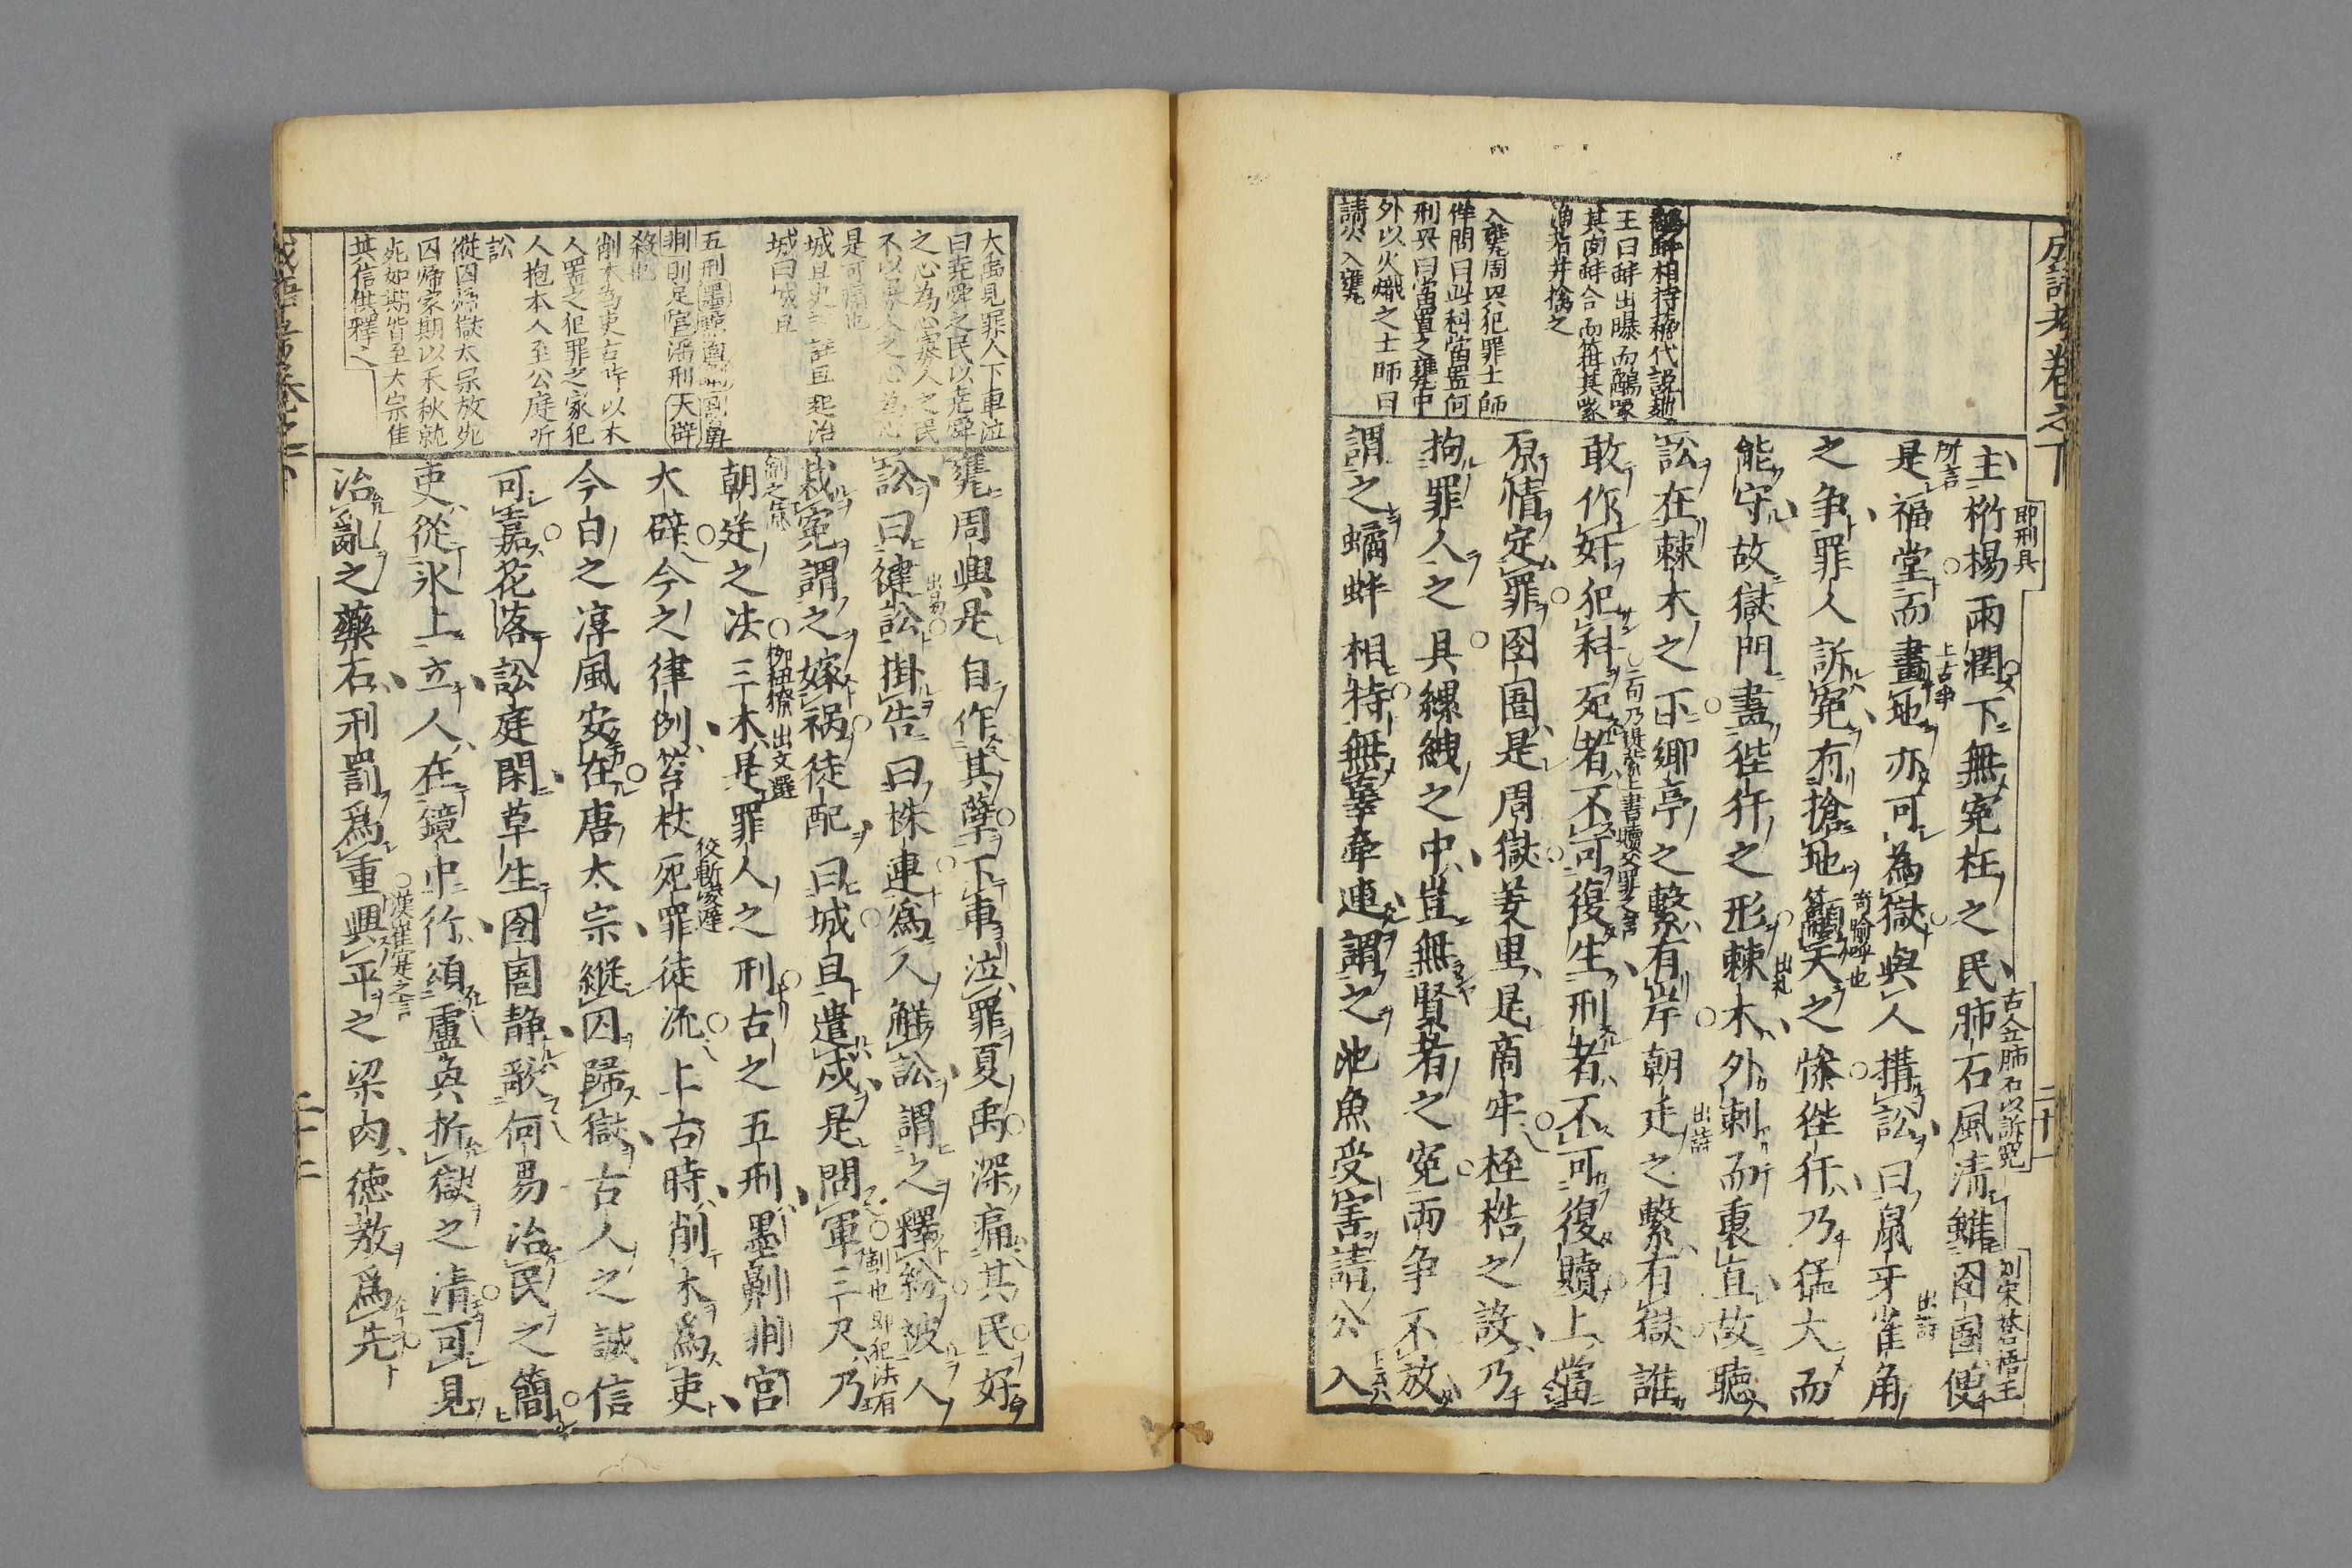 成語考卷之下
二十一
即刑具
古金肺石以訴冤
主桁楊兩潤下無冤枉之民肺石風清雖囹圄便
所言
是福堂而畫地亦可為獄與人搆訟曰鼠牙雀角
上古事
出詩
之争罪人訴冤有搶地籲天之慘狴犴乃猛犬而
奇喻呼也
能守故獄門畫狴犴之形棘木外刺而裏直故聴
出礼
訟在棘木之下鄉亭之繫有岸朝廷之繫有獄誰
出詩
敢作奸犯科死者不可復生刑者不可復贖上當
原情定罪囹圄是周獄羑里是商牢桎梏之設乃
拘罪人之具縲絏之中豈無賢者之冤兩争不放
謂之鷸蚌相持無辜牽連謂之池魚受害請公入
王曰蚌出曝而鷸啄
其肉蚌合而箝其喙
漁者并擒之
入甕周興犯罪士師
伴問曰此科當置何
刑興曰當置之甕中
外以火熾之士師曰
請火入甕
甕周興是自作其孽下車泣罪夏禹深痛其民好
訟曰健訟掛告曰株連為人解訟謂之釋紛被人
出易
栽冤謂之嫁禍徒配曰城旦遣戍是問軍三尺乃
朝廷之法三木是罪人之刑古之五刑墨劓剕宮
出文選
大辟今之律例笞杖死罪徒流上古時削木為吏
今白之淳風安在唐太宗縱囚歸獄古人之誠信
可嘉花落訟庭閑草生囹圄静歌何易治民之簡
吏從氷上立人在鏡中行頌盧奐折獄之清可見
治亂之藥石刑罰為重興平之梁肉德教為先
漢崔寔之言
大禹見罪人下車泣
曰堯舜之民以堯舜
之心為心寡人之民
是可痛也
城曰城旦
殺也
削木為吏古昔以木
人置之犯罪之家犯
人抱本人至公庭听
訟
從囚歸獄太宗放死
囚歸家期以禾秋就
死如期皆至大宗佳
其信供釋之
二十二